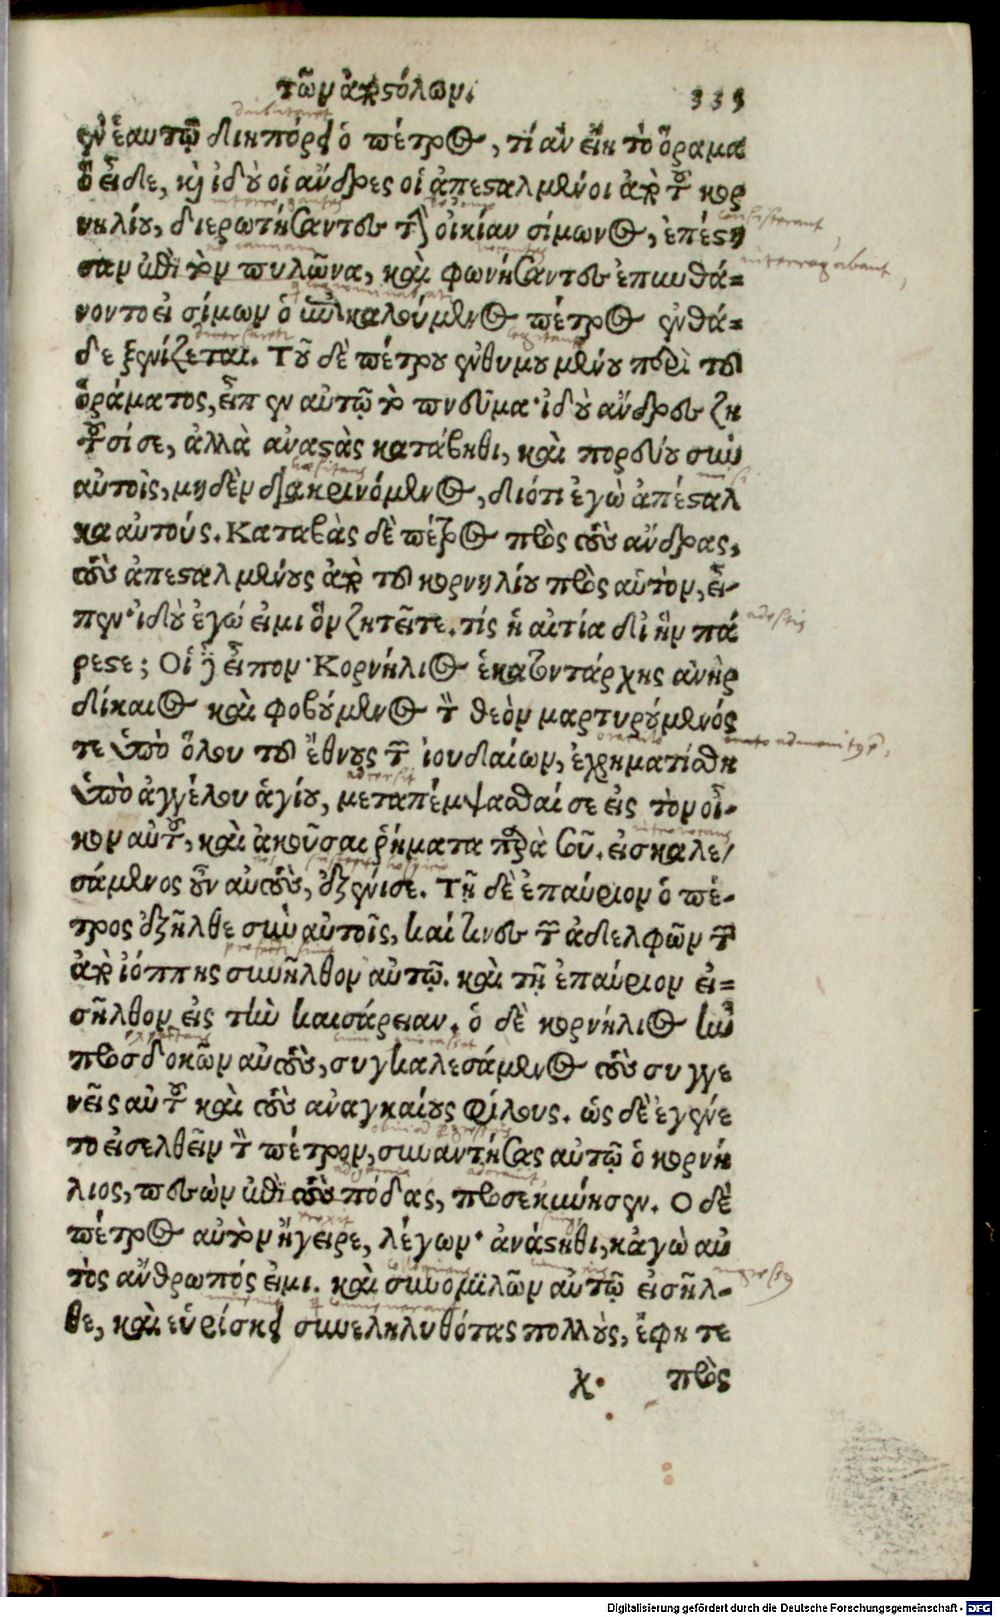 τῶν ἀποστόλων. 339
ἐν ἑαυτῷ διηπόρει ὁ πέτρος, τί ἂν εἴη τὸ ὅραμα
ὃ εἶδε, καὶ ἰδοὺ οἱ ἄνδρες οἱ ἀπεσταλμένοι ἀπὸ τοῦ κορ
νηλίου, διερωτήσαντες τὴν οἰκίαν σίμωνος, ἐπέστη
σαν ἐπὶ τὸν πυλῶνα, καὶ φωνήσαντες ἐπυνθά=
νοντο εἰ σίμων ὁ ἐπικαλούμενος πέτρος ἐνθά=
δε ξενίζεται. Τοῦ δὲ πέτρου ἐνθυμουμένου περὶ τοῦ
ὁράματος, εἶπεν αὐτῷ τὸ πνεῦμα· ἰδοὺ ἄνδρες ζη
τοῦσί σε, ἀλλὰ ἀναστὰς κατάβηθι, καὶ πορεύου σὺν
αὐτοῖς, μηδὲν διακρινόμενος, διότι ἐγὼ ἀπέσταλ
κα αὐτούς. Καταβὰς δὲ πέτρος πρὸς τοὺς ἄνδρας,
τοὺς ἀπεσταλμένους ἀπὸ τοῦ κορνηλίου πρὸς αὑτὸν, εἶ-
πεν· ἰδοὺ ἐγώ εἰμι ὃν ζητεῖτε. τίς ἡ αἰτία δι' ἣν πά
ρεστε; Οἱ δὲ εἶπον· Κορνήλιος ἑκατοντάρχης ἀνὴρ
δίκαιος καὶ φοβούμενος τὸν θεὸν μαρτυρούμενός
τε ὑπὸ ὅλου τοῦ ἔθνους τῶν ἰουδαίων, ἐχρηματίσθη
ὑπὸ ἀγγέλου ἁγίου, μεταπέμψασθαί σε εἰς τὸν οἶ-
κον αὐτοῦ, καὶ ἀκοῦσαι ῥήματα παρὰ σοῦ. εἰσκαλε/
σάμενος οὖν αὐτοὺς, ἐξένισε. Τῇ δὲ ἐπαύριον ὁ πέ-
τρος ἐξῆλθε σὺν αὐτοῖς, καί τινες τῶν ἀδελφῶν τῶν
ἀπὸ ἰόππης συνῆλθον αὐτῷ. καὶ τῇ ἐπαύριον εἰ=
σῆλθον εἰς τὴν καισάρειαν. ὁ δὲ κορνήλιος ἦν
προσδοκῶν αὐτοὺς, συγκαλεσάμενος τοὺς συγγε
νεῖς αὐτοῦ καὶ τοὺς ἀναγκαίους φίλους. ὡς δὲ ἐγένε
το εἰσελθεῖν τὸν πέτρον, συναντήσας αὐτῷ ὁ κορνή
λιος, πεσὼν ἐπὶ τοὺς πόδας, προσεκύνησεν. Ο δὲ
πέτρος αὐτὸν ἤγειρε, λέγων· ἀνάστηθι, κἀγὼ αὐ
τὸς ἄνθρωπός εἰμι. καὶ συνομιλῶν αὐτῷ εἰσῆλ-
θε, καὶ εὑρίσκει συνεληλυθότας πολλοὺς, ἔφη τε
χ. πρὸς
interrogabant
adestis
Digitalisierung gefördert durch die Deutsche Forschungsgemeinschaft - DFG